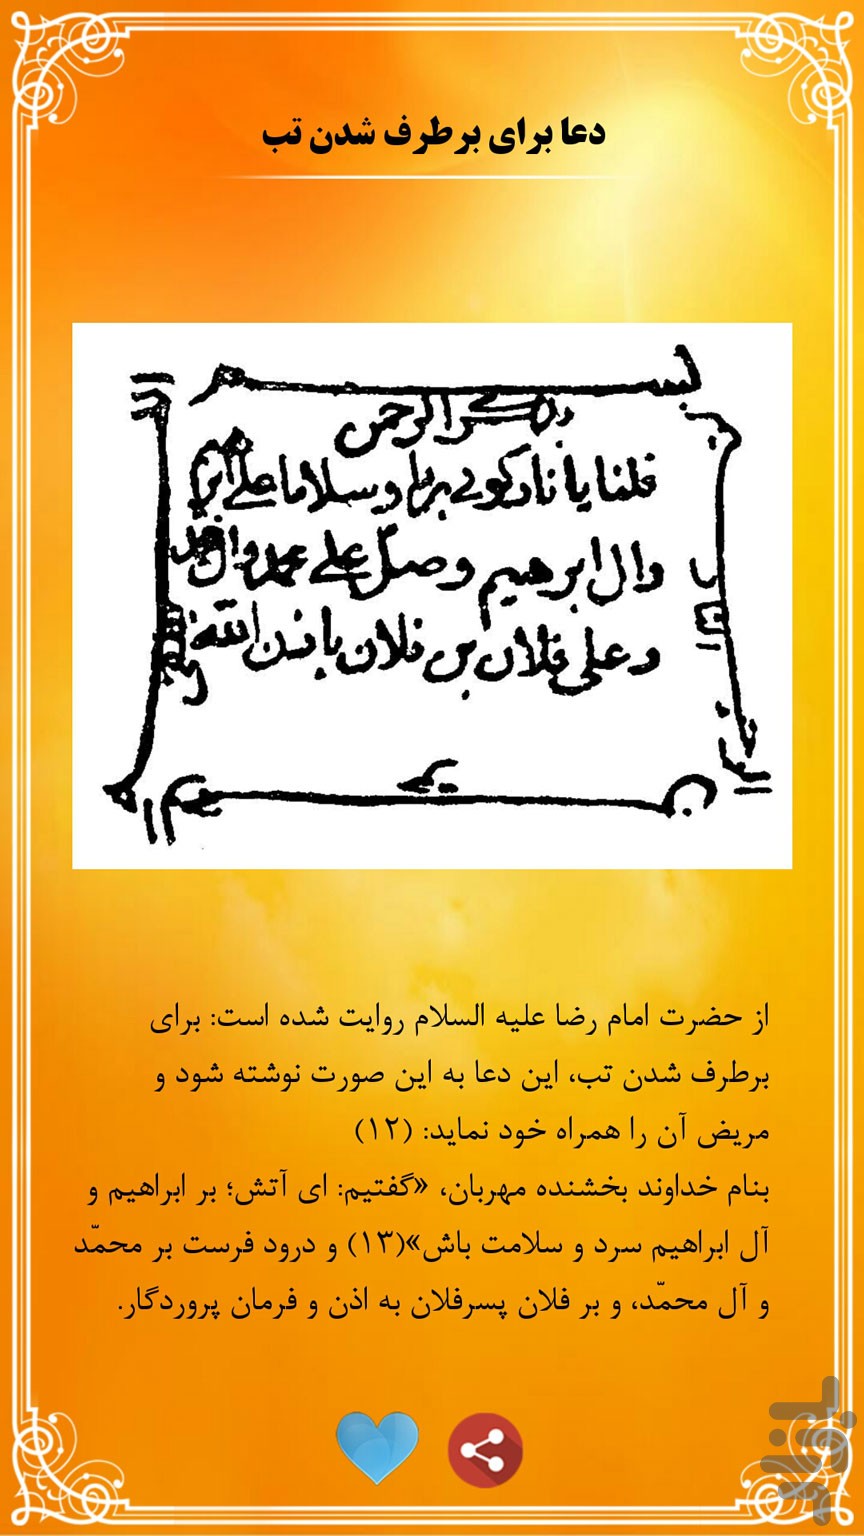 دعا برای برطرف شدن تب
بسم
الرحمن
قلنا یا نار کونی بردا وسلاما علی ابر
وال ابرهیم وصل علی محمد وال محمد
وعلی فلان بن فلان باذن الله
از حضرت امام رضا علیه السلام روایت شده است: برای
برطرف شدن تب، این دعا به این صورت نوشته شود و
مریض آن را همراه خود نماید: (۱۲)
بنام خداوند بخشنده مهربان، «گفتیم: ای آتش؛ بر ابراهیم و
آل ابراهیم سرد و سلامت باش»(۱۳) و درود فرست بر محمّد
و آل محمّد، و بر فلان پسرفلان به اذن و فرمان پروردگار.
بازار